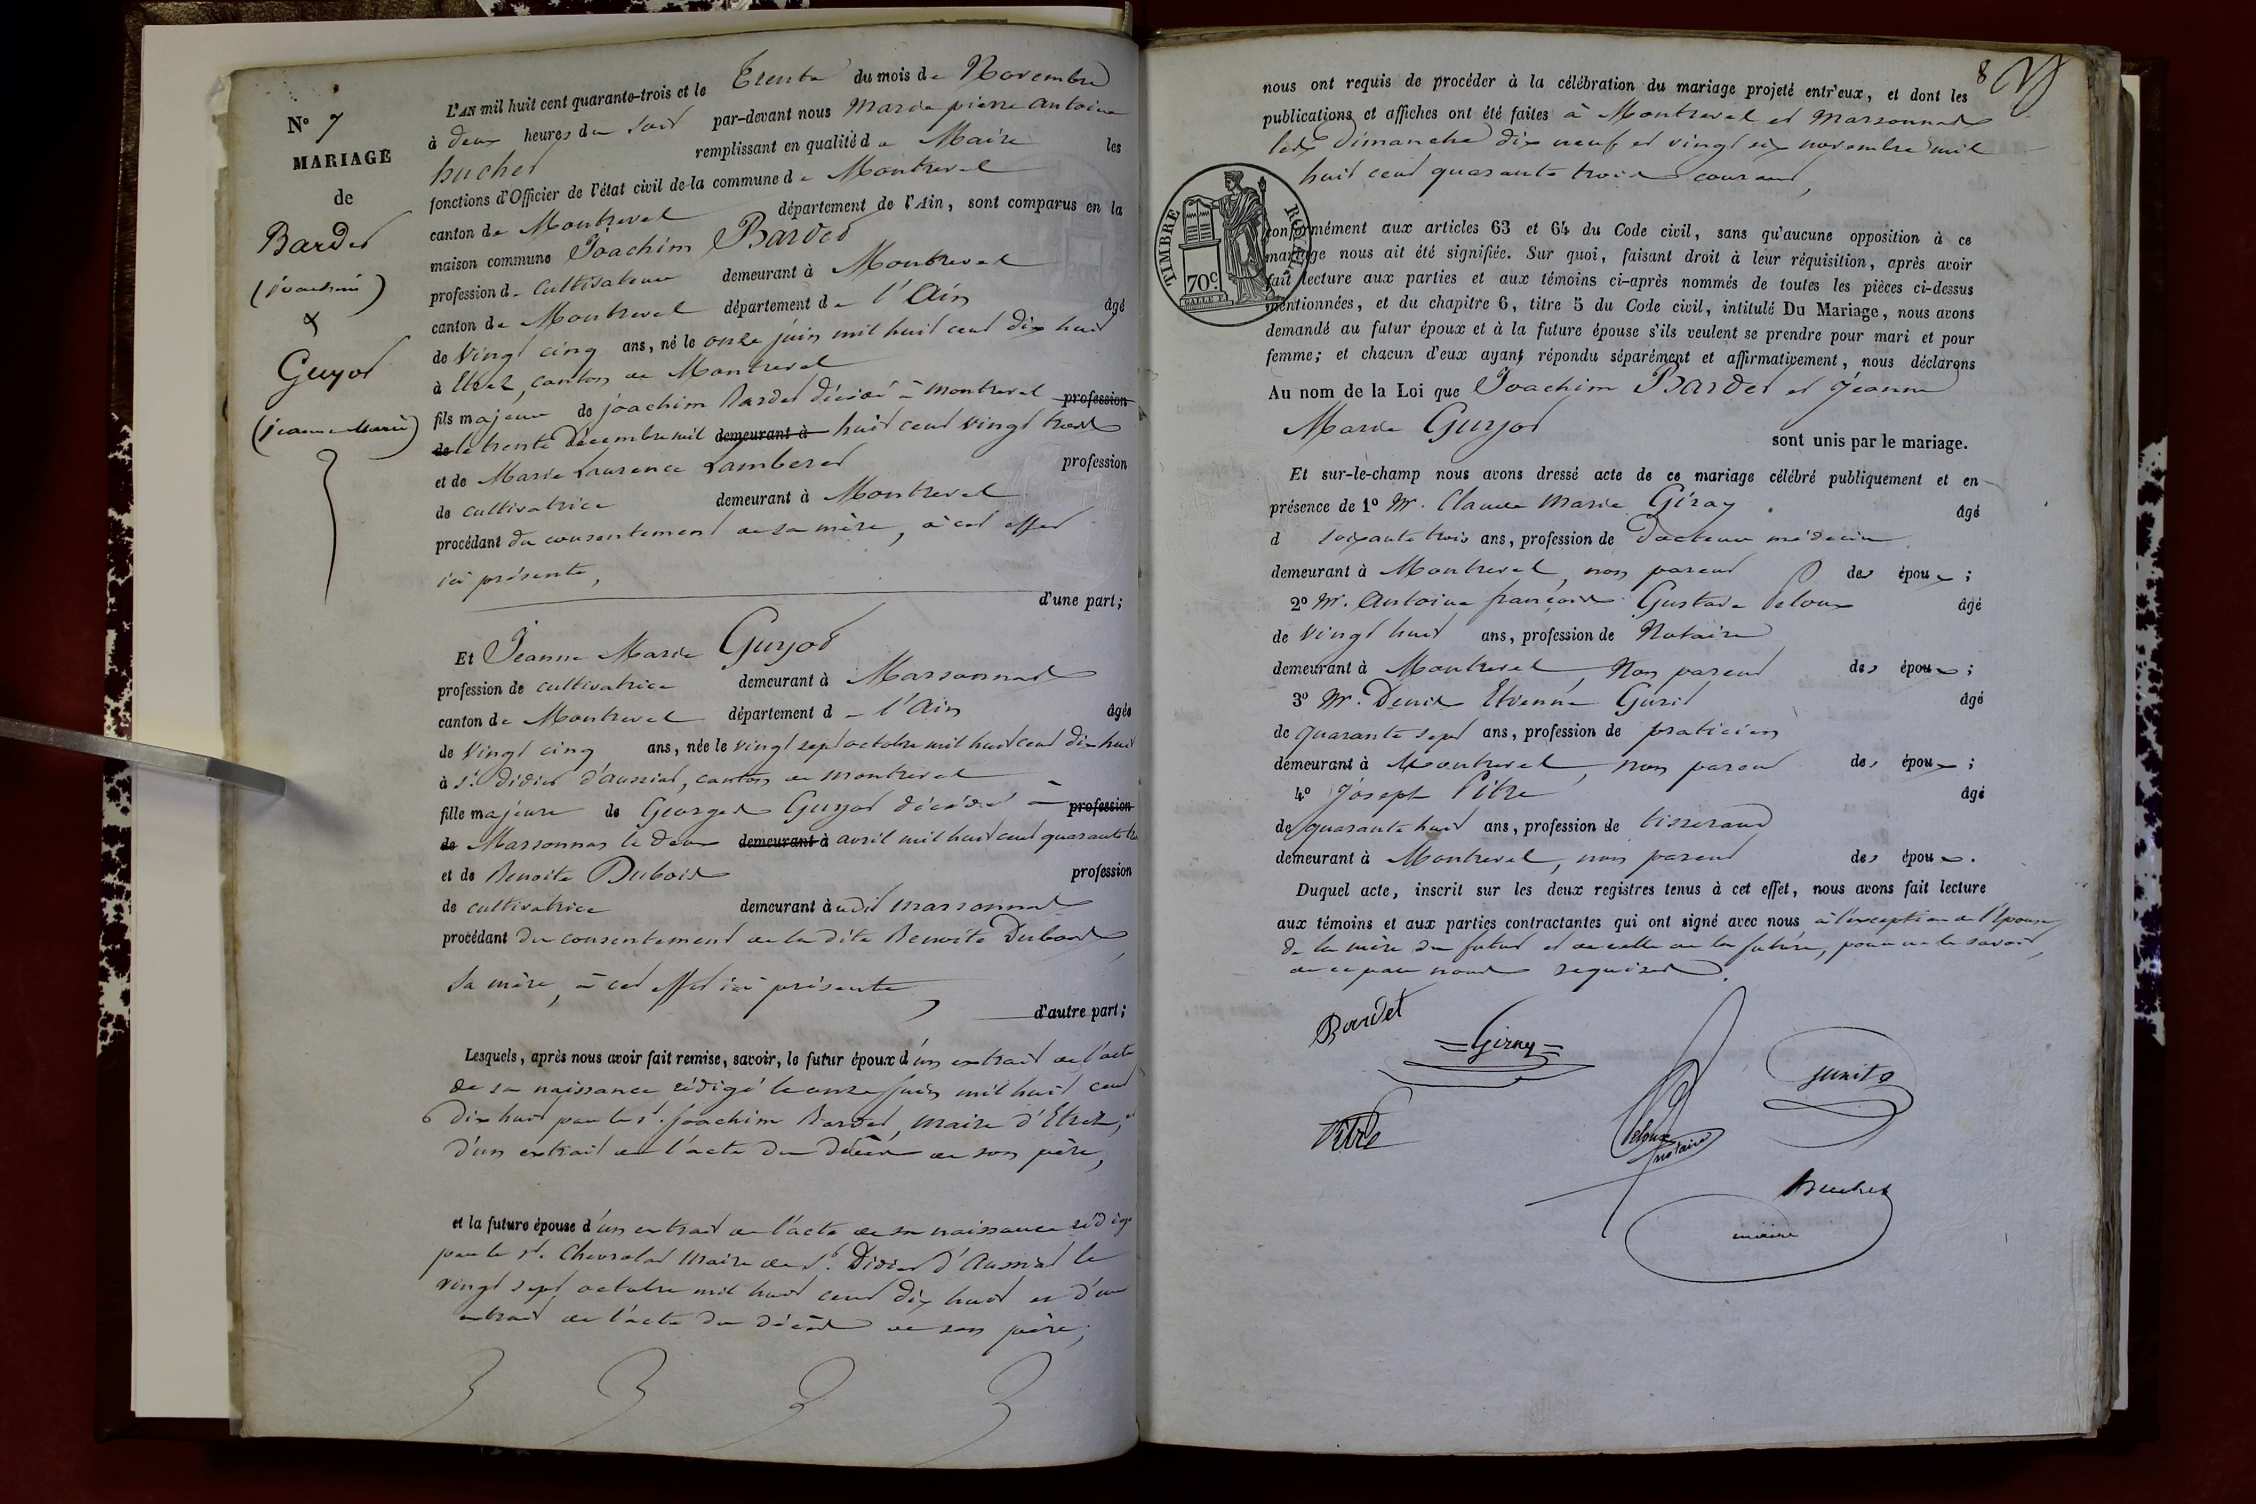 N° 7
MARIAGE
de
Bardet
(joachim)
&
Guyot
(jeanne Marie)
L'AN mil huit cent quarante-trois et le Trente du mois de Novembre
à deux heures du soir par-devant nous Marie pierre antoine
buchet remplissant en qualité de Maire les
fonctions d'Officier de l'état civil de la commune de Montrevel
canton de Montrevel département de l'Ain, sont comparus en la
maison commune Joachim Bardet
profession de Cultivateur demeurant à Montrevel
canton de Montrevel département de l'Ain âgé
de Vingt cinq ans, né le onze juin mil huit cent dix huit
à Etrez, canton de Montrevel
fils majeur de joachim Bardet décédé à montrevel profession
de le trente décembre mil demeurant à huit cent vingt trois
et de Marie Laurence Lamberet profession
de cultivatrice demeurant à Montrevel
procédant du consentement de sa mère, à cet effet
ici présente,
d'une part;
Et Jeanne Marie Guyot
profession de cultivatrice demeurant à Marsonnas
canton de Montrevel département de l'Ain âgée
de Vingt cinq ans, née le vingt sept octobre mil huit cent dix huit
à St. Didier d'aussiat, canton de montrevel
fille majeure de Georges Guyot décédé à profession
de Marsonnas le deux demeurant à avril mil huit cent quarante
et de Benoite Dubois profession
de cultivatrice demeurant à udit marsonnas
procédant du consentement de la dite Benoite Dubois,
sa mère, à cet effet ici présente
d'autre part;
Lesquels, après nous avoir fait remise, savoir, le futur époux d'un extrait de l'acte
de sa naissance rédigé le onze juin mil huit cent
dix huit par le sr. Joachim Bardet, maire d'Etrez, et
d'un extrait de l'acte du décès de son père,
et la future épouse d'un extrait de l'acte de sa naissance rédigé
par le sr. Chevrolat Maire de St. Didier d'Aussiat le
vingt sept octobre mil huit cent dix huit et d'un
extrait de l'acte du décès de son père;
8
nous ont requis de procéder à la célébration du mariage projeté entr'eux, et dont les
publications et affiches ont été faites à Montrevel et Marsonnas
les Dimanche dix neuf et vingt six novembre mil
huit cent quarante trois courant,
TIMBRE ROYAL
70c
conformément aux articles 63 et 64 du Code civil, sans qu'aucune opposition à ce
mariage nous ait été signifiée. Sur quoi, faisant droit à leur réquisition, après avoir
fait lecture aux parties et aux témoins ci-après nommés de toutes les pièces ci-dessus
mentionnées, et du chapitre 6, titre 5 du Code civil, intitulé Du Mariage, nous avons
demandé au futur époux et à la future épouse s'ils veulent se prendre pour mari et pour
femme; et chacun d'eux ayant répondu séparément et affirmativement, nous déclarons
Au nom de la Loi que Joachim Bardet et Jeanne
Marie Guyot sont unis par le mariage.
Et sur-le-champ nous avons dressé acte de ce mariage célébré publiquement et en
présence de 1° Mr. Claude Marie Giray âgé
d soixante trois ans, profession de Docteur médecin
demeurant à Montrevel, non parent des époux;
2° Mr. Antoine françois Gustave Peloux âgé
de Vingt huit ans, profession de Notaire
demeurant à Montrevel, Non parent des époux;
3° Mr. Denis Etienne Gunit âgé
de quarante sept ans, profession de praticien
demeurant à Montrevel, non parent des époux;
4° Joseph Pitre âgé
de quarante huit ans, profession de tisserand
demeurant à Montrevel, non parent des époux.
Duquel acte, inscrit sur les deux registres tenus à cet effet, nous avons fait lecture
aux témoins et aux parties contractantes qui ont signé avec nous à l'exception de l'épouse
de la mère du futur et de celle de la future, pour ne le savoir,
de ce par nous requises.
Bardet
Giray
gunit
Pitre
Peloux
notaire
buchet
maire